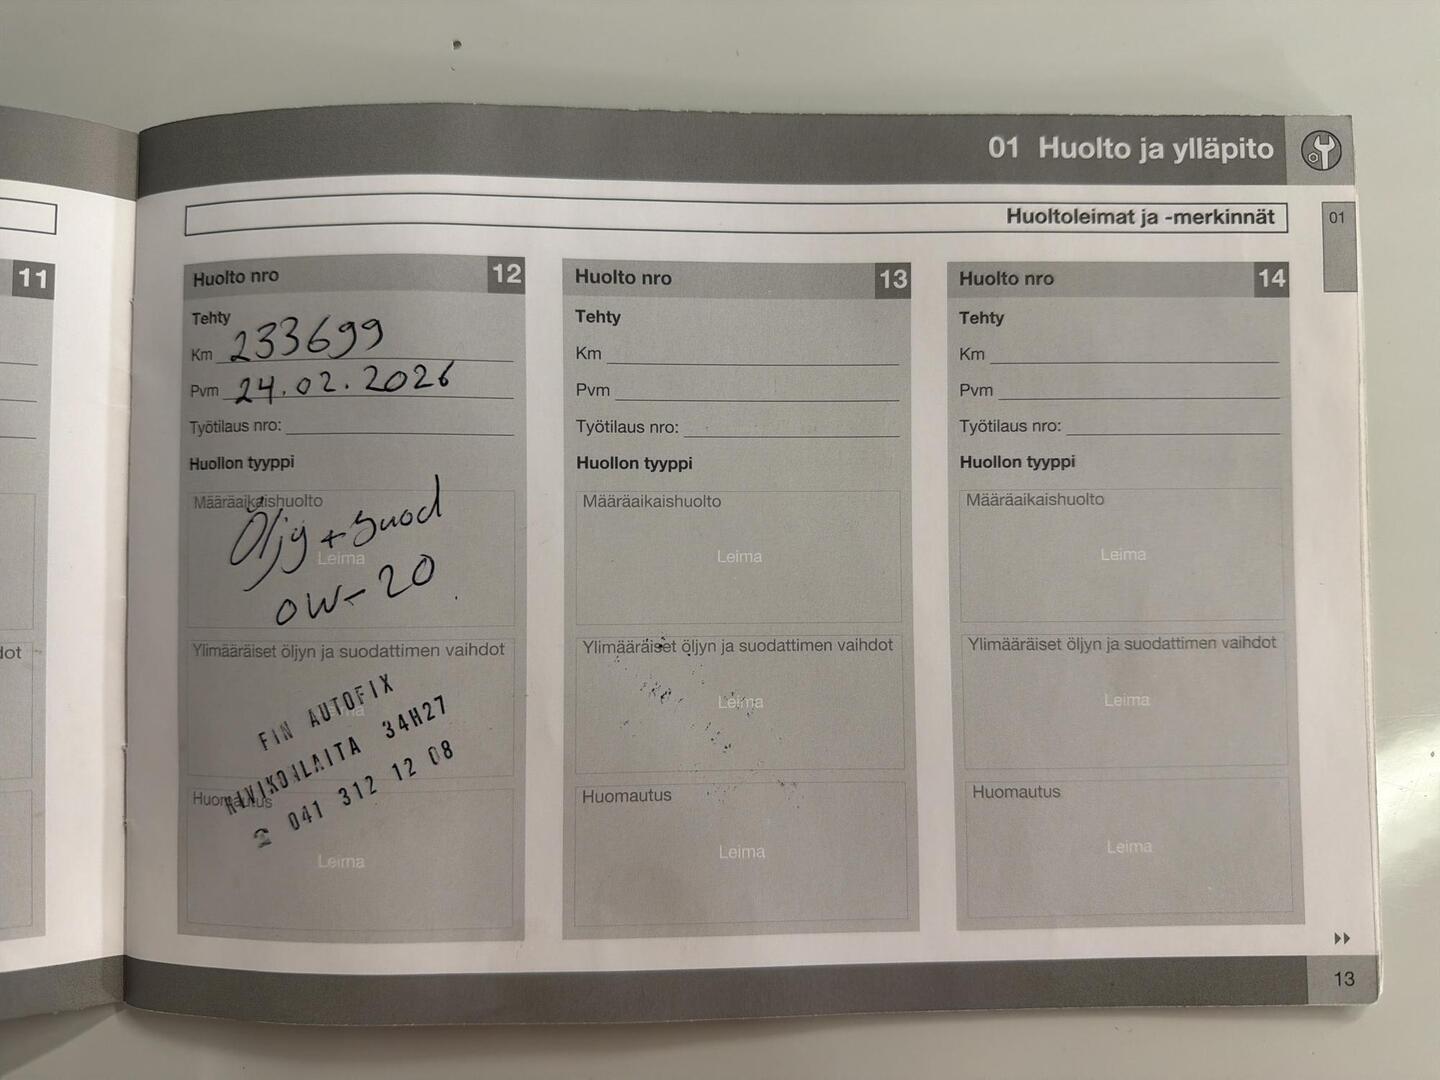 01 Huolto ja ylläpito
Huoltoleimat ja -merkinnät
01
11
dot
Huolto nro 12
Tehty
Km 233699
Pvm 24.02.2026
Työtilaus nro:
Huollon tyyppi
Määräaikaishuolto
Öljy + suod
Leima
0W-20
Ylimääräiset öljyn ja suodattimen vaihdot
FIN AUTOFIX
34H27
☎ 041 312 12 08
Huomautus
Leima
Huolto nro 13
Tehty
Km
Pvm
Työtilaus nro:
Huollon tyyppi
Määräaikaishuolto
Leima
Ylimääräiset öljyn ja suodattimen vaihdot
Leima
Huomautus
Leima
Huolto nro 14
Tehty
Km
Pvm
Työtilaus nro:
Huollon tyyppi
Määräaikaishuolto
Leima
Ylimääräiset öljyn ja suodattimen vaihdot
Leima
Huomautus
Leima
13